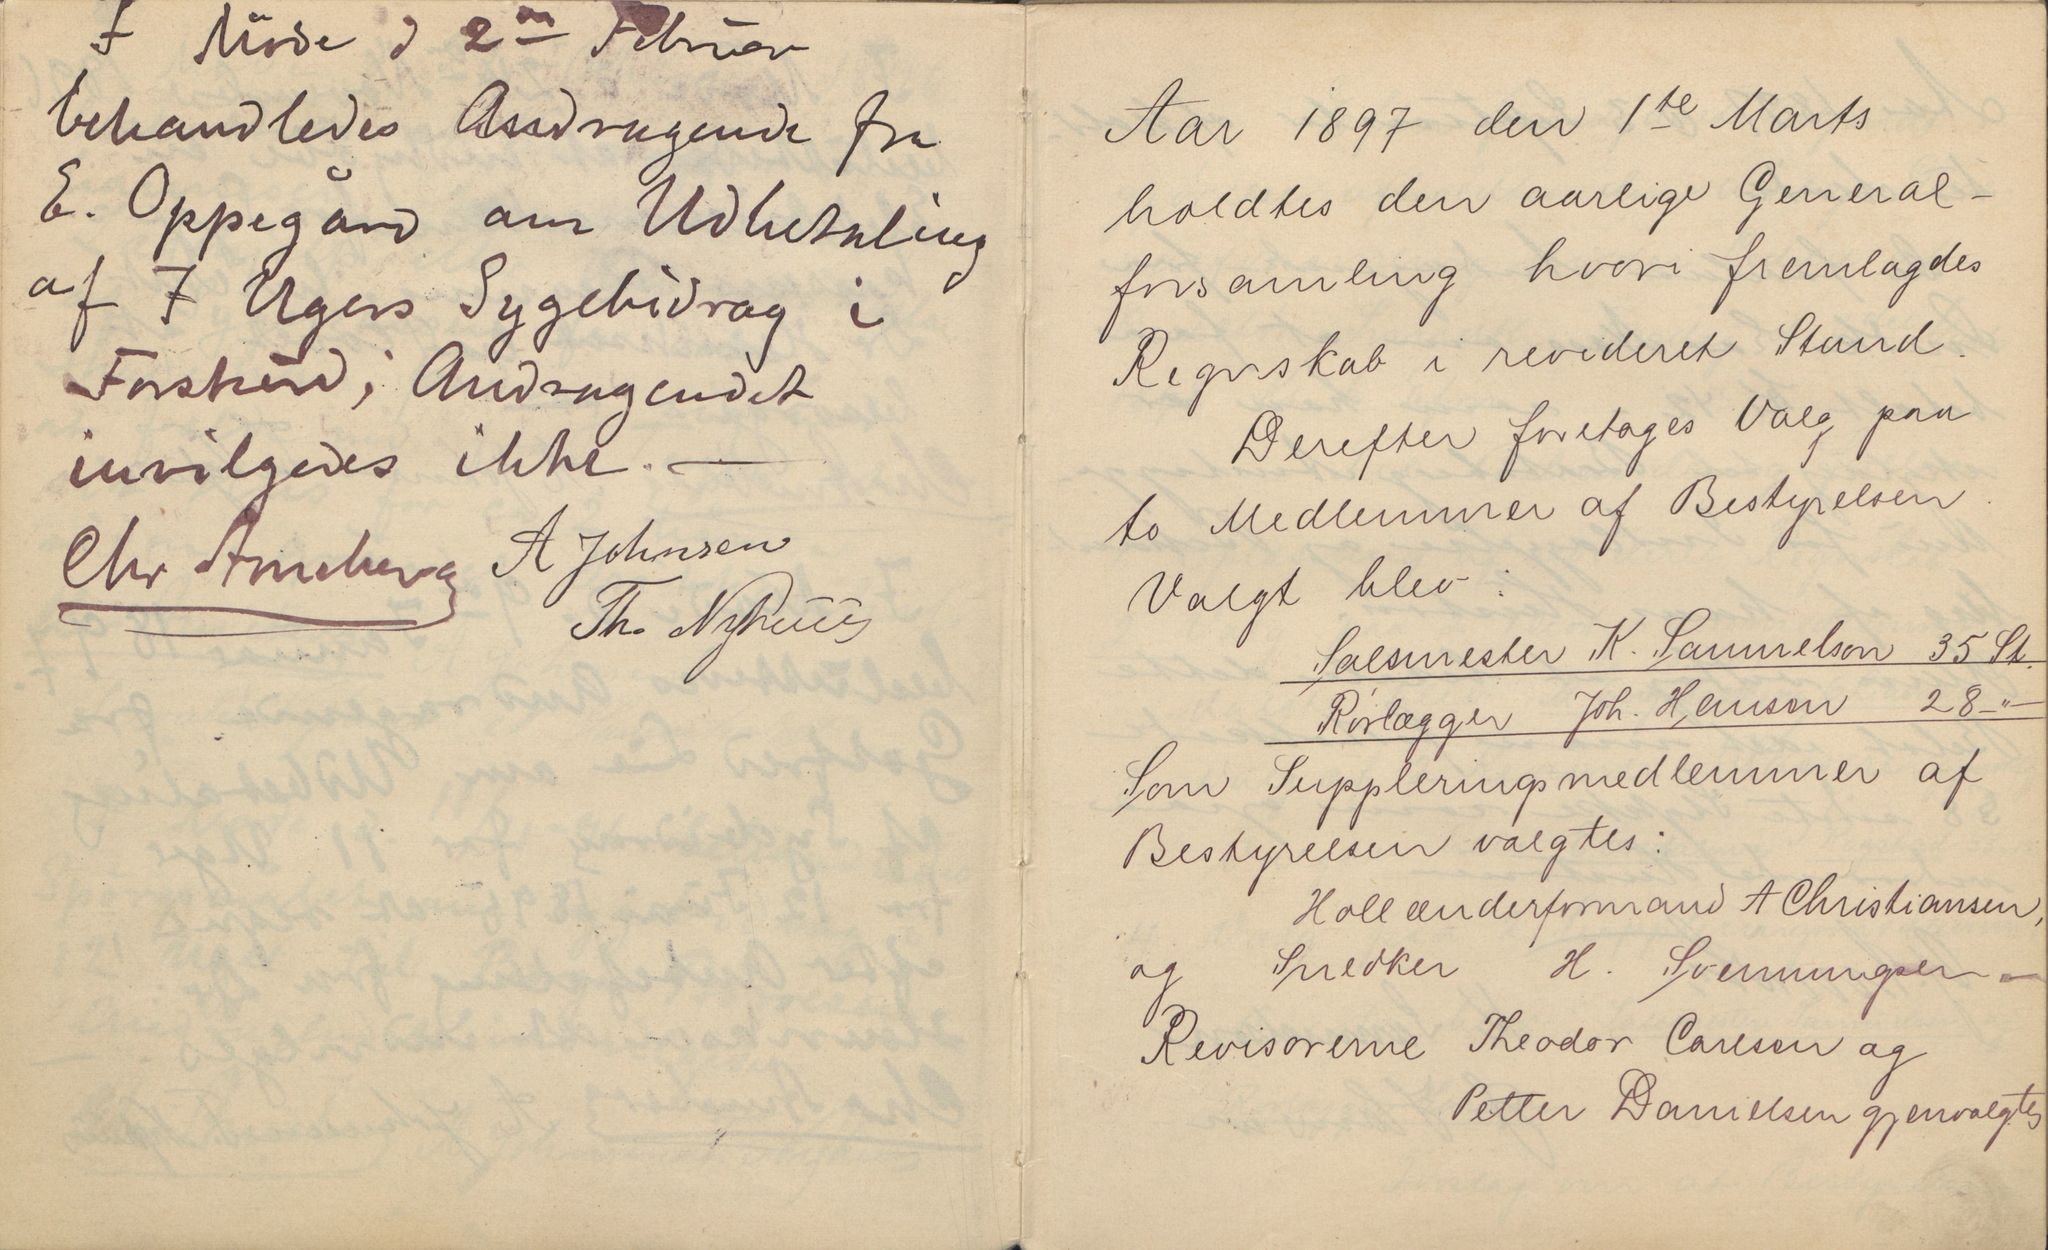 I Møde d 2den Februar
behandledes Andragende fra
E. Oppegård om Udbetaling
af 7 Ugers Sygebidrag i
Forskud; Andragendet
invilgedes ikke. —
Chr Arneberg A Johnsen
Th. Nyhuus
Aar 1897 den 1te Marts
holdtes den aarlige General-
forsamling hvori fremlagdes
Regnskab i revideret Stand.
Derefter foretages Valg paa
to Medlemmer af Bestyrelsen.
Valgt blev:
Salsmester K. Samuelson 35 St.
Rørlægger Joh. Hanson 28 -"-
Som Suppleringsmedlemmer af
Bestyrelsen valgtes:
Hollænderformand A Christiansen,
og Snedker H. Svenningsen —
Revisorerne Theodor Carlson og
Petter Danielsen gjenvalgtes